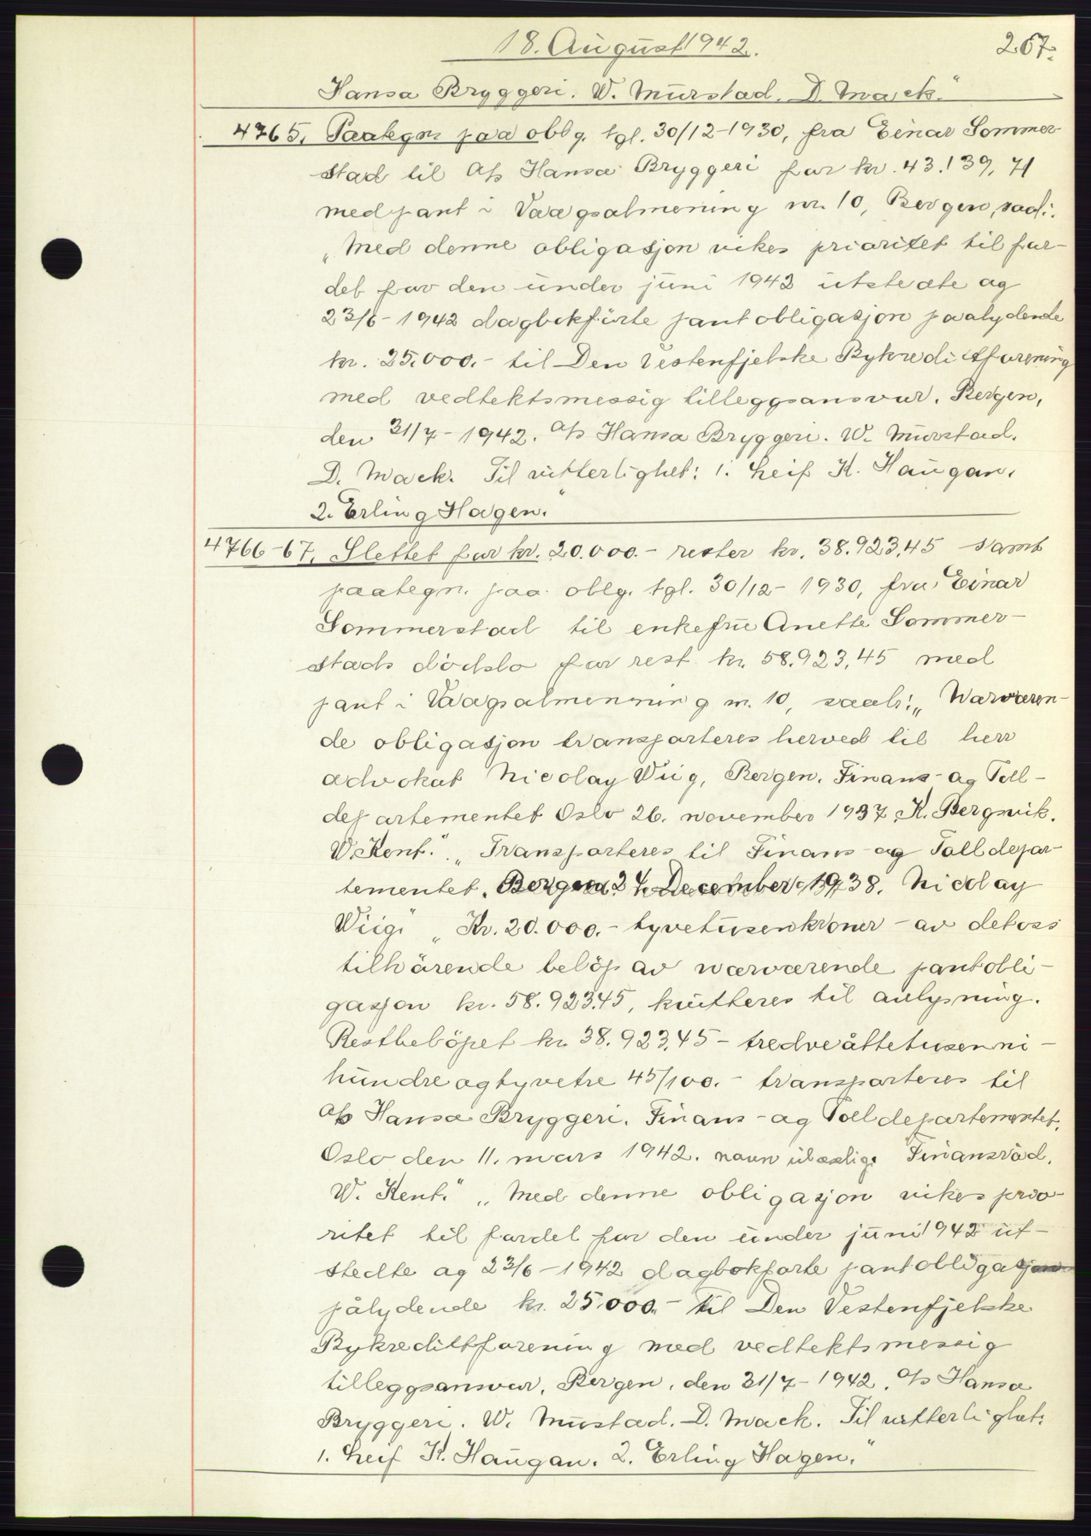 18. August 1942. 267.
Hansa Bryggeri. W. Mürstad. D. Mack."
4765. Paategn. paa oblg. tgl. 30/12-1930, fra Einar Sommer-
stad til A/s Hansa Bryggeri for kr. 43.139,71
med pant i Vaagsalmening nr. 10, Bergen, saal:
"Med denne obligasjon vikes prioritet til for-
del for den under juni 1942 utstedte og
23/6-1942 dagbokførte pantobligasjon paalydende
kr. 25.000.- til Den Vestenfjelske Bykredittforening
med vedtektsmessig tilleggsansvar. Bergen,
den 31/7-1942. A/s Hansa Bryggeri. W. Mürstad.
D. Mack. Til vitterlighet: 1. Leif K. Haugan.
2. Erling Hagen."
4766-67. Slettet for kr. 20.000.- rester kr. 38.923,45 samt
paategn. paa oblg. tgl. 30/12-1930, fra Einar
Sommerstad til enkefrue Anette Sommer-
stads dødsbo for rest kr. 58.923,45 med
pant i Vaagsalmenning nr. 10, saal: "Nærværen-
de obligasjon transporteres herved til herr
advokat Nicolay Wiig, Bergen. Finans- og Toll-
departementet Oslo 26. november 1937 K. Bergsvik.
W. Kent." "Transporteres til Finans- og Tolldepar-
tementet. Bergen 24 December 1938. Nicolay
Wiig" "Kr. 20.000.- tyvetusenkroner - av det oss
tilhörende belöp av nærværende pantobli-
gasjon kr. 58.923.45, kvitteres til avlysning.
Restbelöpet kr. 38.923,45 - tredveåttetusenni-
hundreogtyvetre 45/100.- transporteres til
A/s Hansa Bryggeri. Finans- og Tolldepartementet.
Oslo den 11. mars 1942. navn uleselig. Finansråd.
W. Kent." "Med denne obligasjon vikes prio-
ritet til fordel for den under juni 1942 ut-
stedte og 23/6-1942 dagbokførte pantobligasjon
pålydende kr. 25.000.- til Den Vestenfjelske
Bykredittforening med vedtektsmessig
tilleggsansvar. Bergen, den 31/7-1942. A/s Hansa
Bryggeri. W. Mustad. D. Mack. Til vitterlighet:
1. Leif K. Haugan. 2. Erling Hagen."